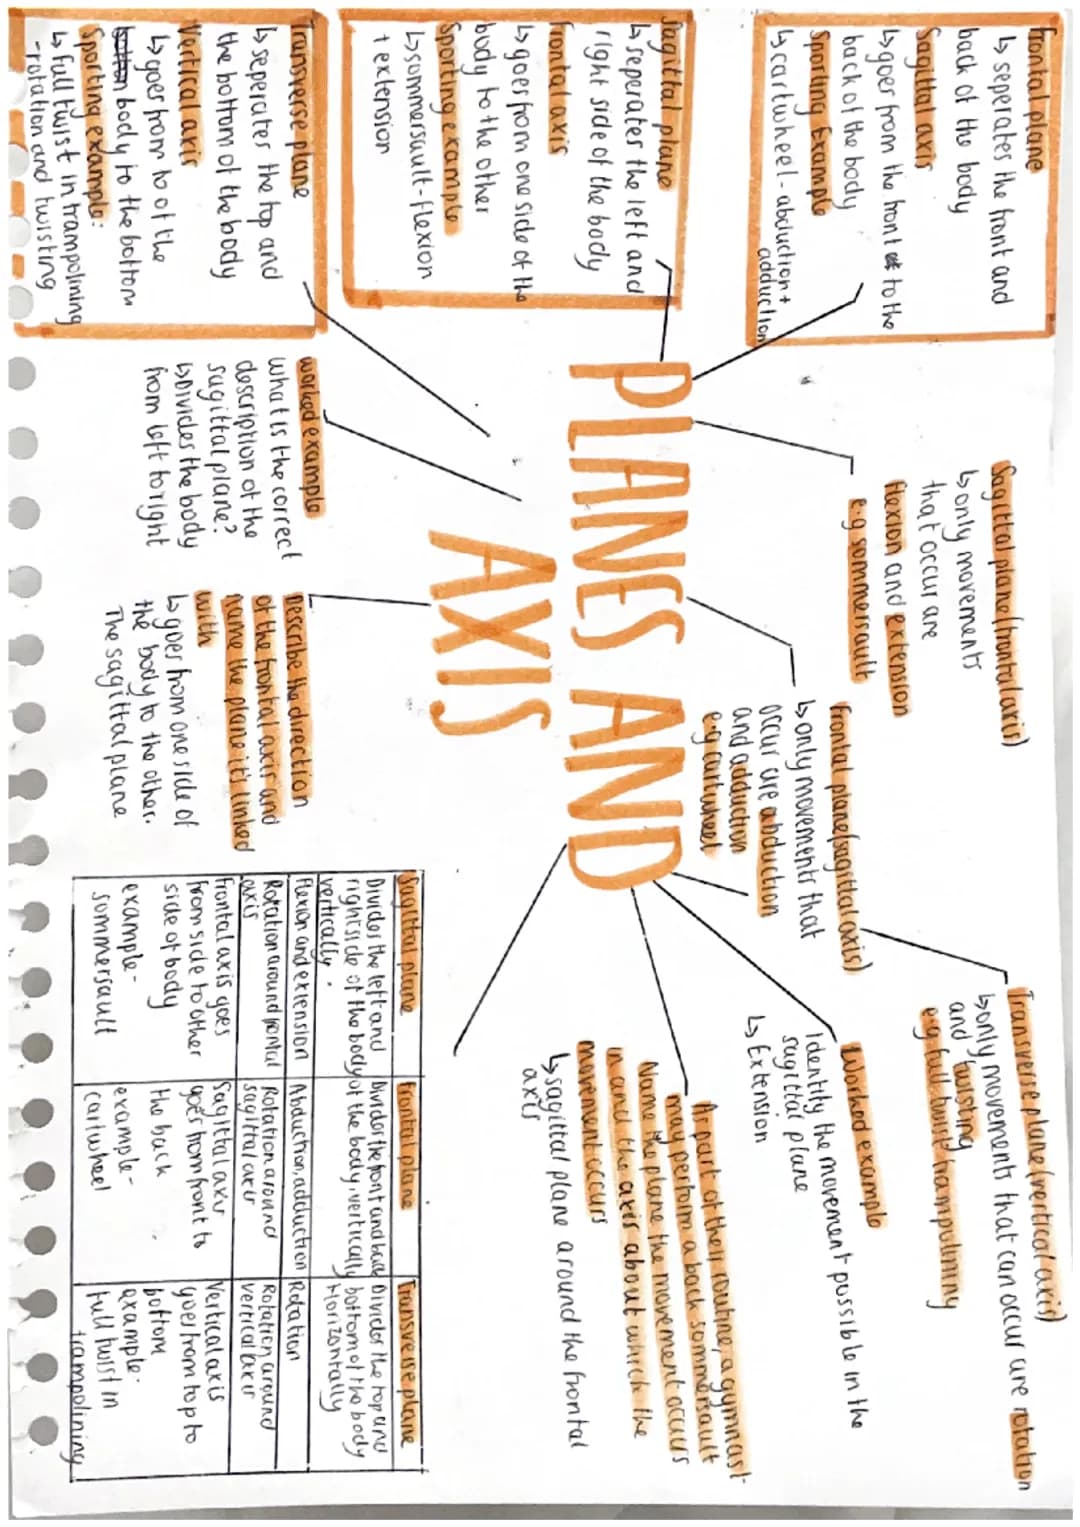 PLANES AND
AXIS
Frontal plane
↳ seperates the front and
back of the body
Sagittal axis
↳ goes from the front to the
back of the body
Sporting Example
↳ cartwheel - abduction +
adduction
Sagittal plane
↳ seperates the left and
right side of the body
Frontal axis
↳ goes from one side of the
body to the other
Sporting example
↳ sommersault - flexion
+ extension
Transverse plane
↳ seperates the top and
the bottom of the body
Vertical axis
↳ goes from to of the
body to the bottom
Sporting example:
↳ full twist in trampolining
- rotation and twisting
Sagittal plane (frontal axis)
↳ only movements
that occur are
flexion and extension
e.g sommersault
Frontal plane (sagittal axis)
↳ only movements that
occur are abduction
and adduction
e.g cartwheel
Transverse plane (vertical axis)
↳ only movements that can occur are rotation
and twisting
e.g full twist trampolining
Worked example
Identify the movement possible in the
sagittal plane
↳ Extension
As part of their routine, a gymnast
may perform a back sommersault
Name the plane the movement occurs
in and the axis about which the
movement occurs
↳ sagittal plane around the frontal
axis
worked example
what is the correct
description of the
sagittal plane?
↳ Divides the body
from left to right
Describe the direction
of the frontal axis and
name the plane it's linked
with
↳ goes from one side of
the body to the other.
The sagittal plane
Sagittal plane
Divides the left and
right side of the body
vertically.
Flexion and extension
Rotation around frontal
axis
Frontal axis goes
from side to other
side of body
example -
sommersault
Frontal plane
Divides the front and back
of the body, vertically
Abduction, adduction
Rotation around
sagittal axis
Sagittal axis
goes from front to
the back
example -
cartwheel
Transverse plane
Divides the top and
bottom of the body
Horizontally
Rotation
Rotation around
vertical axis
Vertical axis
goes from top to
bottom
example -
full twist in
trampolining